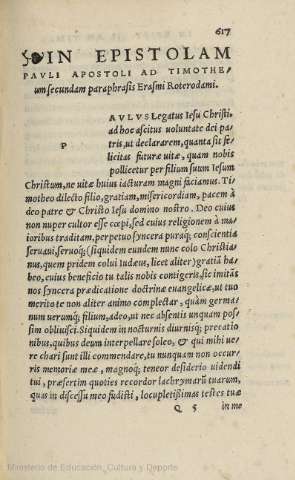 617
IN EPISTOLAM
PAVLI APOSTOLI AD TIMOTHE/
um secundam paraphrasis Erasmi Roterodami.
P AVLVS Legatus Iesu Christi,
ad hoc ascitus voluntate dei pa=
tris, ut declararem, quanta sit fe=
licitas futuræ vitæ, quam nobis
pollicetur per filium suum Iesum
Christum, ne vitæ huius iacturam magni faciamus. Ti=
motheo dilecto filio, gratiam, misericordiam, pacem à
deo patre & Christo Iesu domino nostro. Deo cuius
non nuper cultor esse cœpi, sed cuius religionem à ma=
ioribus traditam, perpetuo syncera puraq; conscientia
servaui, servoq; (siquidem eundem nunc colo Christia=
nus, quem pridem colui Iudæus, licet aliter) gratiā ha=
beo, cuius beneficio tu talis nobis contigeris, sic imitās
nos syncera prædicatione doctrinæ euangelicæ, ut tuo
merito te non aliter animo complectar, quàm germa=
num verumq; filium, adeo, ut nec absentis unquam pos=
sim obliuisci. Siquidem in nocturnis diurnisq; precatio
nibus, quibus deum interpellare soleo, & qui mihi ue=
re chari sunt illi commendare, tu nunquam non occur=
ris memoriæ meæ, magnoq; teneor desiderio uidendi
tui, præsertim quoties recordor lachrymarū tuarum,
quas in discessu meo fudisti, locupletissimas testes tuæ
Q 5 in me
Ministerio de Educación, Cultura y Deporte